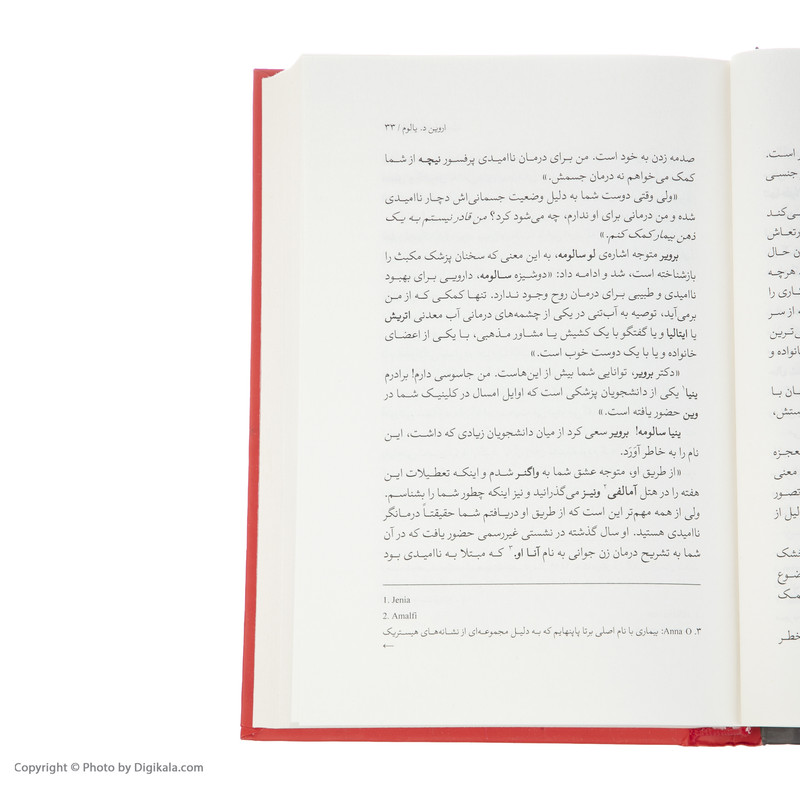 ر است.
جنسی
ی‌کند
رتعاش
ن حال
هرچه
شاری را
ه از سر
ی‌ترین
خانواده و
ان با
ستش،
عجزه
معنی
تصور
لیل از
خشک
ضوع
مک
خطر
اروین د. یالوم / ۳۳
صدمه زدن به خود است. من برای درمان ناامیدی پرفسور نیچه از شما
کمک می‌خواهم نه درمان جسمش.»
«ولی وقتی دوست شما به دلیل وضعیت جسمانی‌اش دچار ناامیدی
شده و من درمانی برای او ندارم، چه می‌شود کرد؟ من قادر نیستم به یک
ذهن بیمار کمک کنم.»
برویر متوجه اشاره‌ی لو سالومه، به این معنی که سخنان پزشک مکبث را
بازشناخته است، شد و ادامه داد: «دوشیزه سالومه، دارویی برای بهبود
ناامیدی و طبیبی برای درمان روح وجود ندارد. تنها کمکی که از من
برمی‌آید، توصیه به آب‌تنی در یکی از چشمه‌های درمانی آب معدنی اتریش
یا ایتالیا و یا گفتگو با یک کشیش یا مشاور مذهبی، با یکی از اعضای
خانواده و یا با یک دوست خوب است.»
«دکتر برویر، توانایی شما بیش از این‌هاست. من جاسوسی دارم! برادرم
ینیا۱ یکی از دانشجویان پزشکی است که اوایل امسال در کلینیک شما در
وین حضور یافته است.»
ینیا سالومه! برویر سعی کرد از میان دانشجویان زیادی که داشت، این
نام را به خاطر آوَرَد.
«از طریق او، متوجه عشق شما به واگنر شدم و اینکه تعطیلات این
هفته را در هتل آمالفی۲ ونیز می‌گذرانید و نیز اینکه چطور شما را بشناسم.
ولی از همه مهم‌تر این است که از طریق او دریافتم شما حقیقتاً درمانگر
ناامیدی هستید. او سال گذشته در نشستی غیررسمی حضور یافت که در آن
شما به تشریح درمان زن جوانی به نام آنا او.۳ که مبتلا به ناامیدی بود
1. Jenia
2. Amalfi
۳. Anna O: بیماری با نام اصلی برتا پاپنهایم که به دلیل مجموعه‌ای از نشانه‌های هیستریک
←
Copyright © Photo by Digikala.com